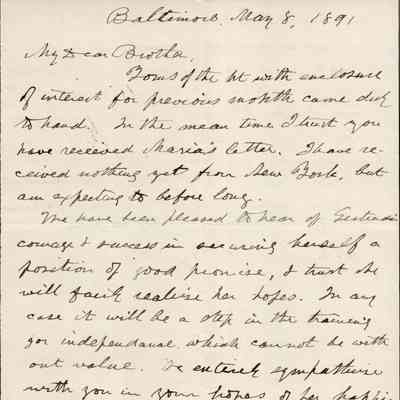 Baltimore, May 8, 1891
My Dear Brother,
Yours of the 1st with enclosure
of interest for previous month came duly
to hand. In the mean time I trust you
have received Maria's letter. I have re-
ceived nothing yet from New York, but
am expecting to before long.
We have been pleased to hear of Gertrude's
courage & success in securing herself a
position of good promise, & trust she
will fairly realise her hopes. In any
case it will be a step in the training
for independance, which cannot be with
out value. We entirely sympathise
with you in your hopes of her happi